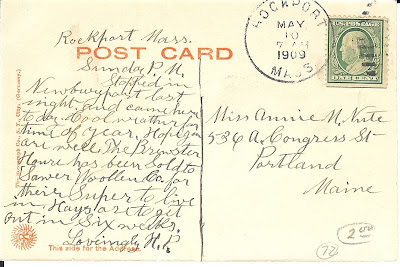 Rockport Mass.
POST CARD
Sunday P.M.
Stopped in
Newburyport last
night and came here
today. Cool weather for
time of year. Hope you
are well. The Brewster
House has been Sold to
Sawer Woollen Co. for
their Super to live
in. Hays are to get
out in Six weeks.
Lovingly H.P.
This side for the Address.
ROCKPORT
MAY
10
7 AM
1909
MASS.
Miss Annie M. Nute
536 A. Congress St
Portland
Maine
2.00